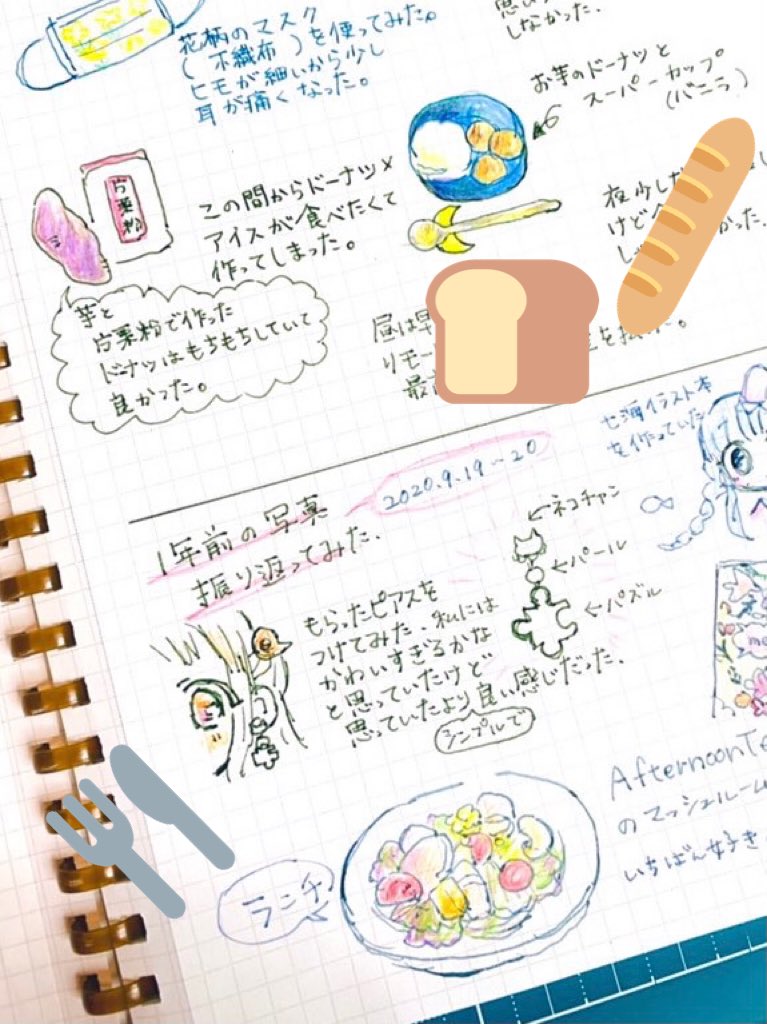 花柄のマスク
(不織布)を使ってみた。
ヒモが細いから少し
耳が痛くなった。
しなかった.
お芋のドーナツと
スーパーカップ
(バニラ)
片栗粉
この間からドーナツ×
アイスが食べたくて
作ってしまった。
夜少し
けど
かった.
芋と
片栗粉で作った
ドーナツはもちもちしていて
良かった。
昼は
リモー
最
2020.9.19~20
1年前の写真
振り返ってみた.
七海イラスト本
を作っていた
←ネコチャン
←パール
←パズル
もらったピアスを
つけてみた.私には
かわいすぎるかな
と思っていたけど
思っていたより良い感じだった.
シンプルで
AfternoonTe
のマッシュルーム
いちばん好き
ランチ